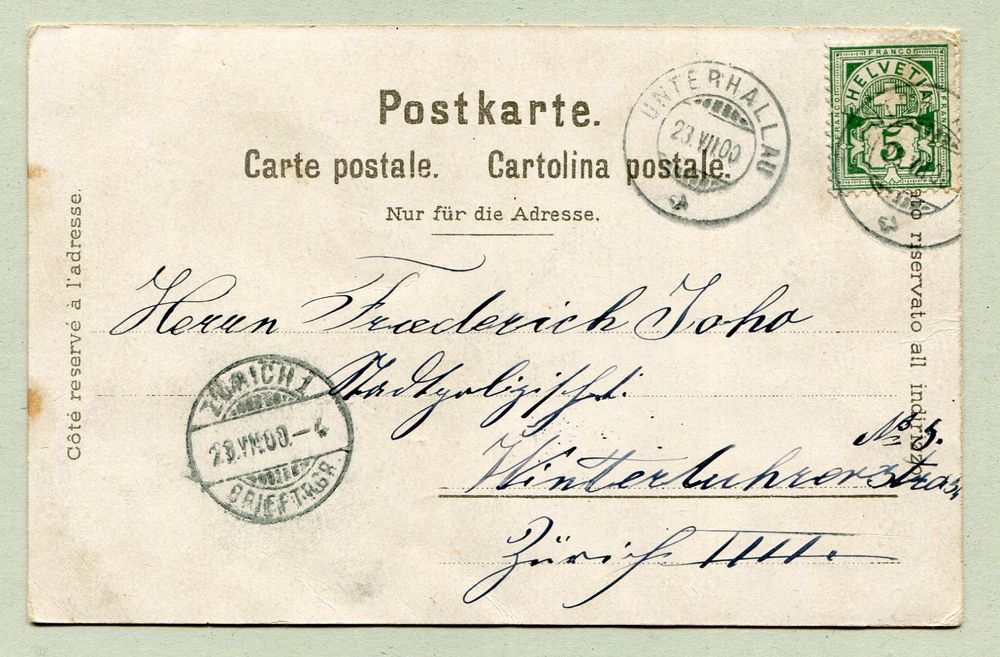 Postkarte.
Carte postale. Cartolina postale.
Nur für die Adresse.
Côté reservé à l'adresse.
ato riservato all indirizzo
FRANCO
FRANCO
FRANCO
HELVETIA
5
UNTERHALLAU
23.VII.00
Herrn Fræderich Joho
Stadtpolizischt.
No 5.
Winterthurerstrass
Zürich IIII.
ZÜRICH 1
23.VII.00.-4
BRIEFTRGR.